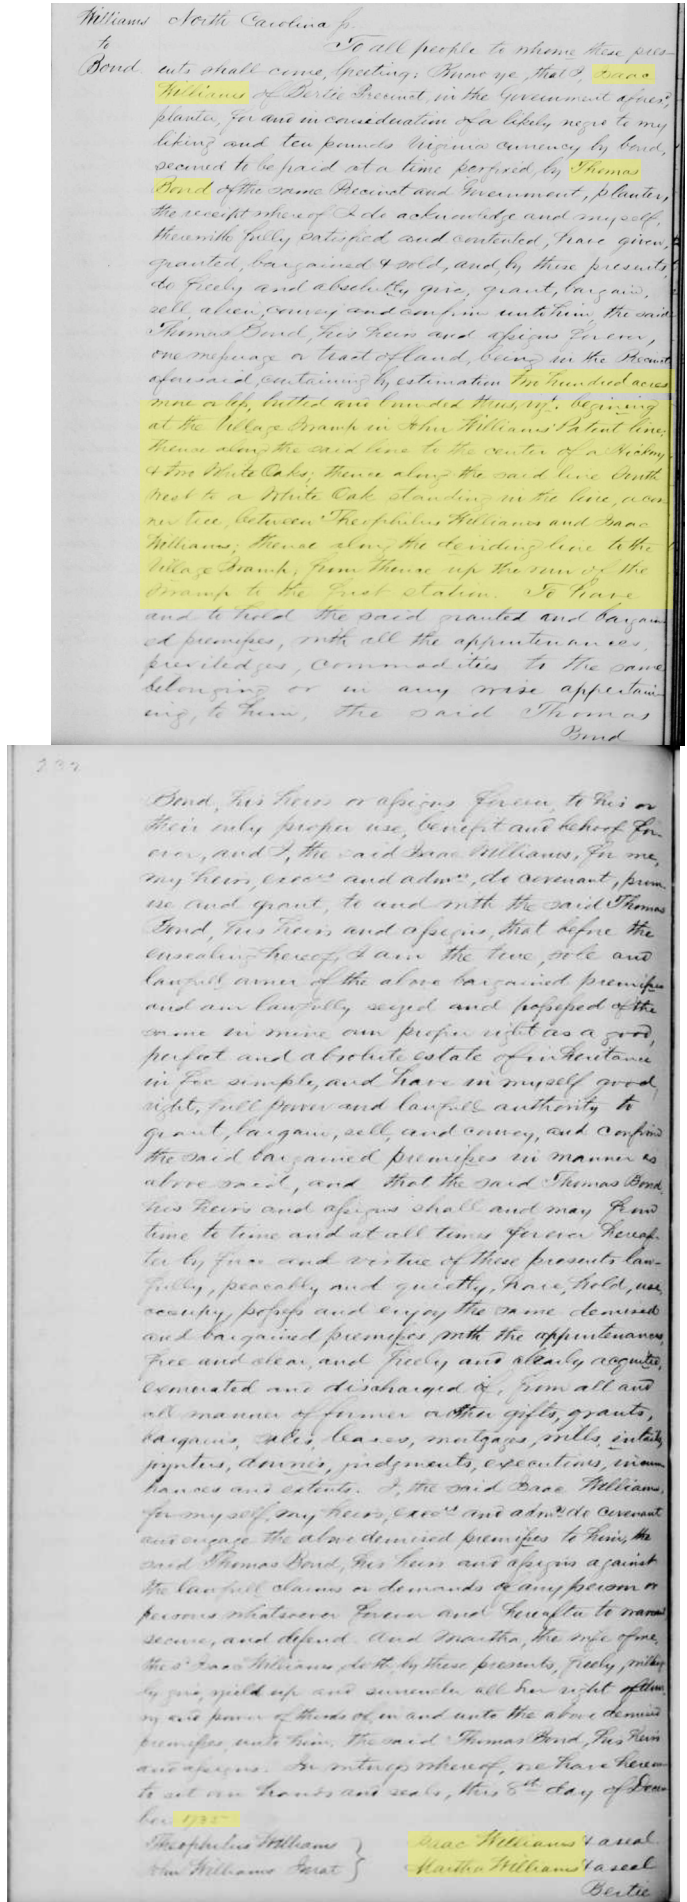 Williams North Carolina ss.
to To all people to whome these pres-
Bond. ents shall come, Greeting: Know ye, that I, Isaac
Williams of Bertie Precinct, in the Government afores.d,
planter, for and in consideration of a likely negro to my
liking and ten pounds Virginia currency by bond,
secured to be paid at a time perfixed, by Thomas
Bond of the same Precinct and Government, planter,
the receipt whereof I do acknowledge and myself,
therewith fully satisfied and contented, have given,
granted, bargained & sold, and, by these presents,
do freely and absolutely give, grant, bargain,
sell, alien, convey and confirm unto him, the said
Thomas Bond, his heirs and assigns forever,
one messuage or tract of land, being in the Precinct
aforesaid, containing by estimation two hundred acres
more or less, butted and bounded thus, viz: begining
at the Village Swamp in John Williams' Patent line;
thence along the said line to the center of a Hickory
& two White Oaks; thence along the said line South
West to a White Oak standing in the line, a cor-
ner tree, between Theophilus Williams and Isaac
Williams; thence along the deviding line to the
Village Swamp; from thence up the run of the
Swamp to the first station. To have
and to hold the said granted and bargain-
ed premises, with all the appurtenances,
previledges, commodities to the same
belonging or in any wise appertain-
ing, to him, the said Thomas
Bond
232
Bond, his heirs or assigns forever, to his or
their only proper use, benefit and behoof for-
ever, and I, the said Isaac Williams, for me,
my heirs, exec.rs and adm.rs, do covenant, prom-
ise and grant, to and with the said Thomas
Bond, his heirs and assigns, that before the
ensealing hereof, I am the true, sole and
lawfull owner of the above bargained premises
and am lawfully seized and possessed of the
same in mine own proper right as a good,
perfect and absolute estate of inheritance
in fee simple, and have in myself good
right, full power and lawfull authority to
grant, bargain, sell, and convey, and confirm
the said bargained premises in manner as
above said, and that the said Thomas Bond,
his heirs and assigns shall and may from
time to time and at all times forever hereaf-
ter by force and virtue of these presents law-
fully, peacably and quietly, have, hold, use,
occupy, possess and enjoy the same demised
and bargained premises, with the appurtenances,
free and clear, and freely and clearly acquited,
exonerated and discharged of, from all and
all manner of former or other gifts, grants,
bargains, sales, leases, mortgages, wills, intails,
joynters, dowries, judgments, executions, incum-
brances and extents. I, the said Isaac Williams,
for myself, my heirs, exec.rs and adm.rs do covenant
and engage the above demised premises to him, the
said Thomas Bond, his heirs and assigns against
the lawfull claims or demands of any person or
persons whatsoever forever and hereafter to warrant
secure, and defend. And Martha, the wife of me,
the s.d Isaac Williams, doth, by these presents, freely, willing-
ly give, yield up and surrender all her right of
and power of thirds of, in and unto the above demised
premises, unto him, the said Thomas Bond, his heirs
and assigns. In witness whereof, we have hereun-
to set our hands and seals, this 8th day of Decem-
ber 1735
Theophilus Williams } Isaac Williams & a seal
John Williams Jurat } Martha Williams & a seal
Bertie